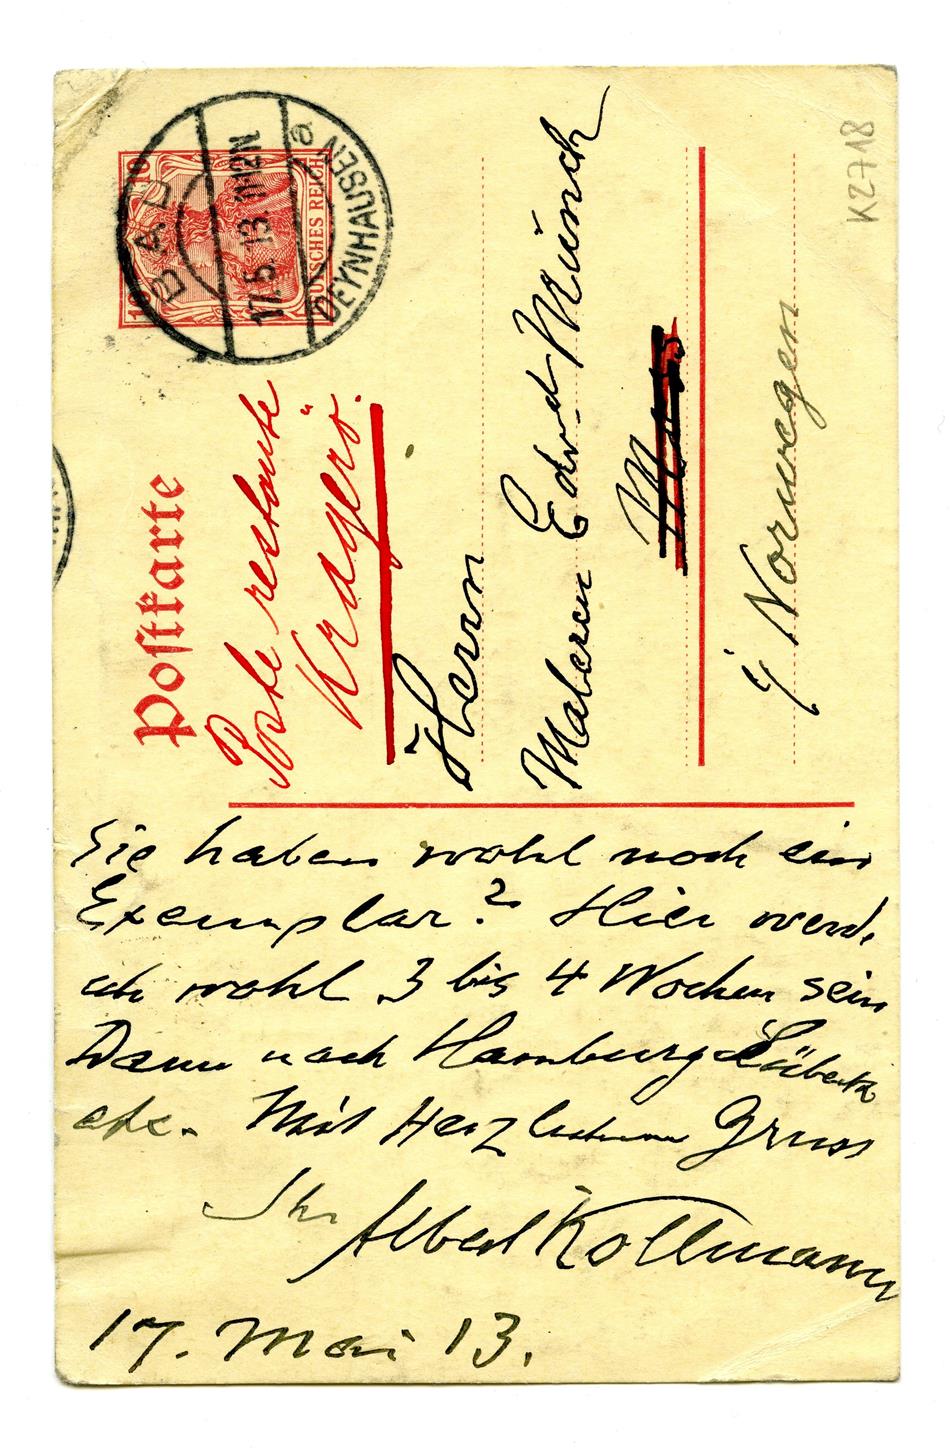 Postkarte
10 10
DEUTSCHES REICH
BAD OEYNHAUSEN
17.5.13 11-12N
a
Poste restante
Kragerö.
Herrn
Maleren Edvd Münch
Moss
i/ Norwegen
K2718
Sie haben wohl noch ein
Exemplar? Hier werde
ich wohl 3 bis 4 Wochen sein
Dann nach Hamburg Lübeck
etc. Mit Herzlichem Gruss
Ihr Albert Kollmann
17. Mai 13.